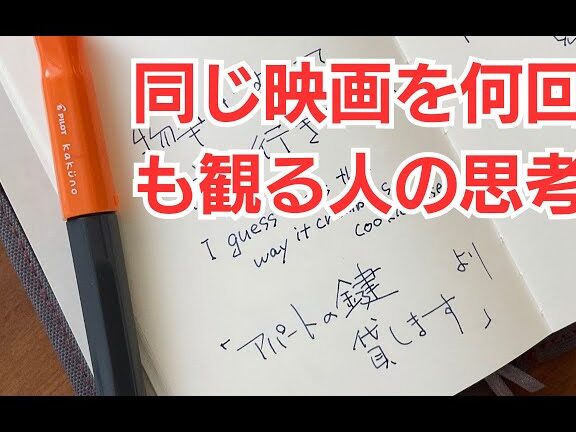 同じ映画を何回
も観る人の思考
PILOT kaküno
行き
I guess
way it
coo
wise
「アパートの鍵
貸します」
より